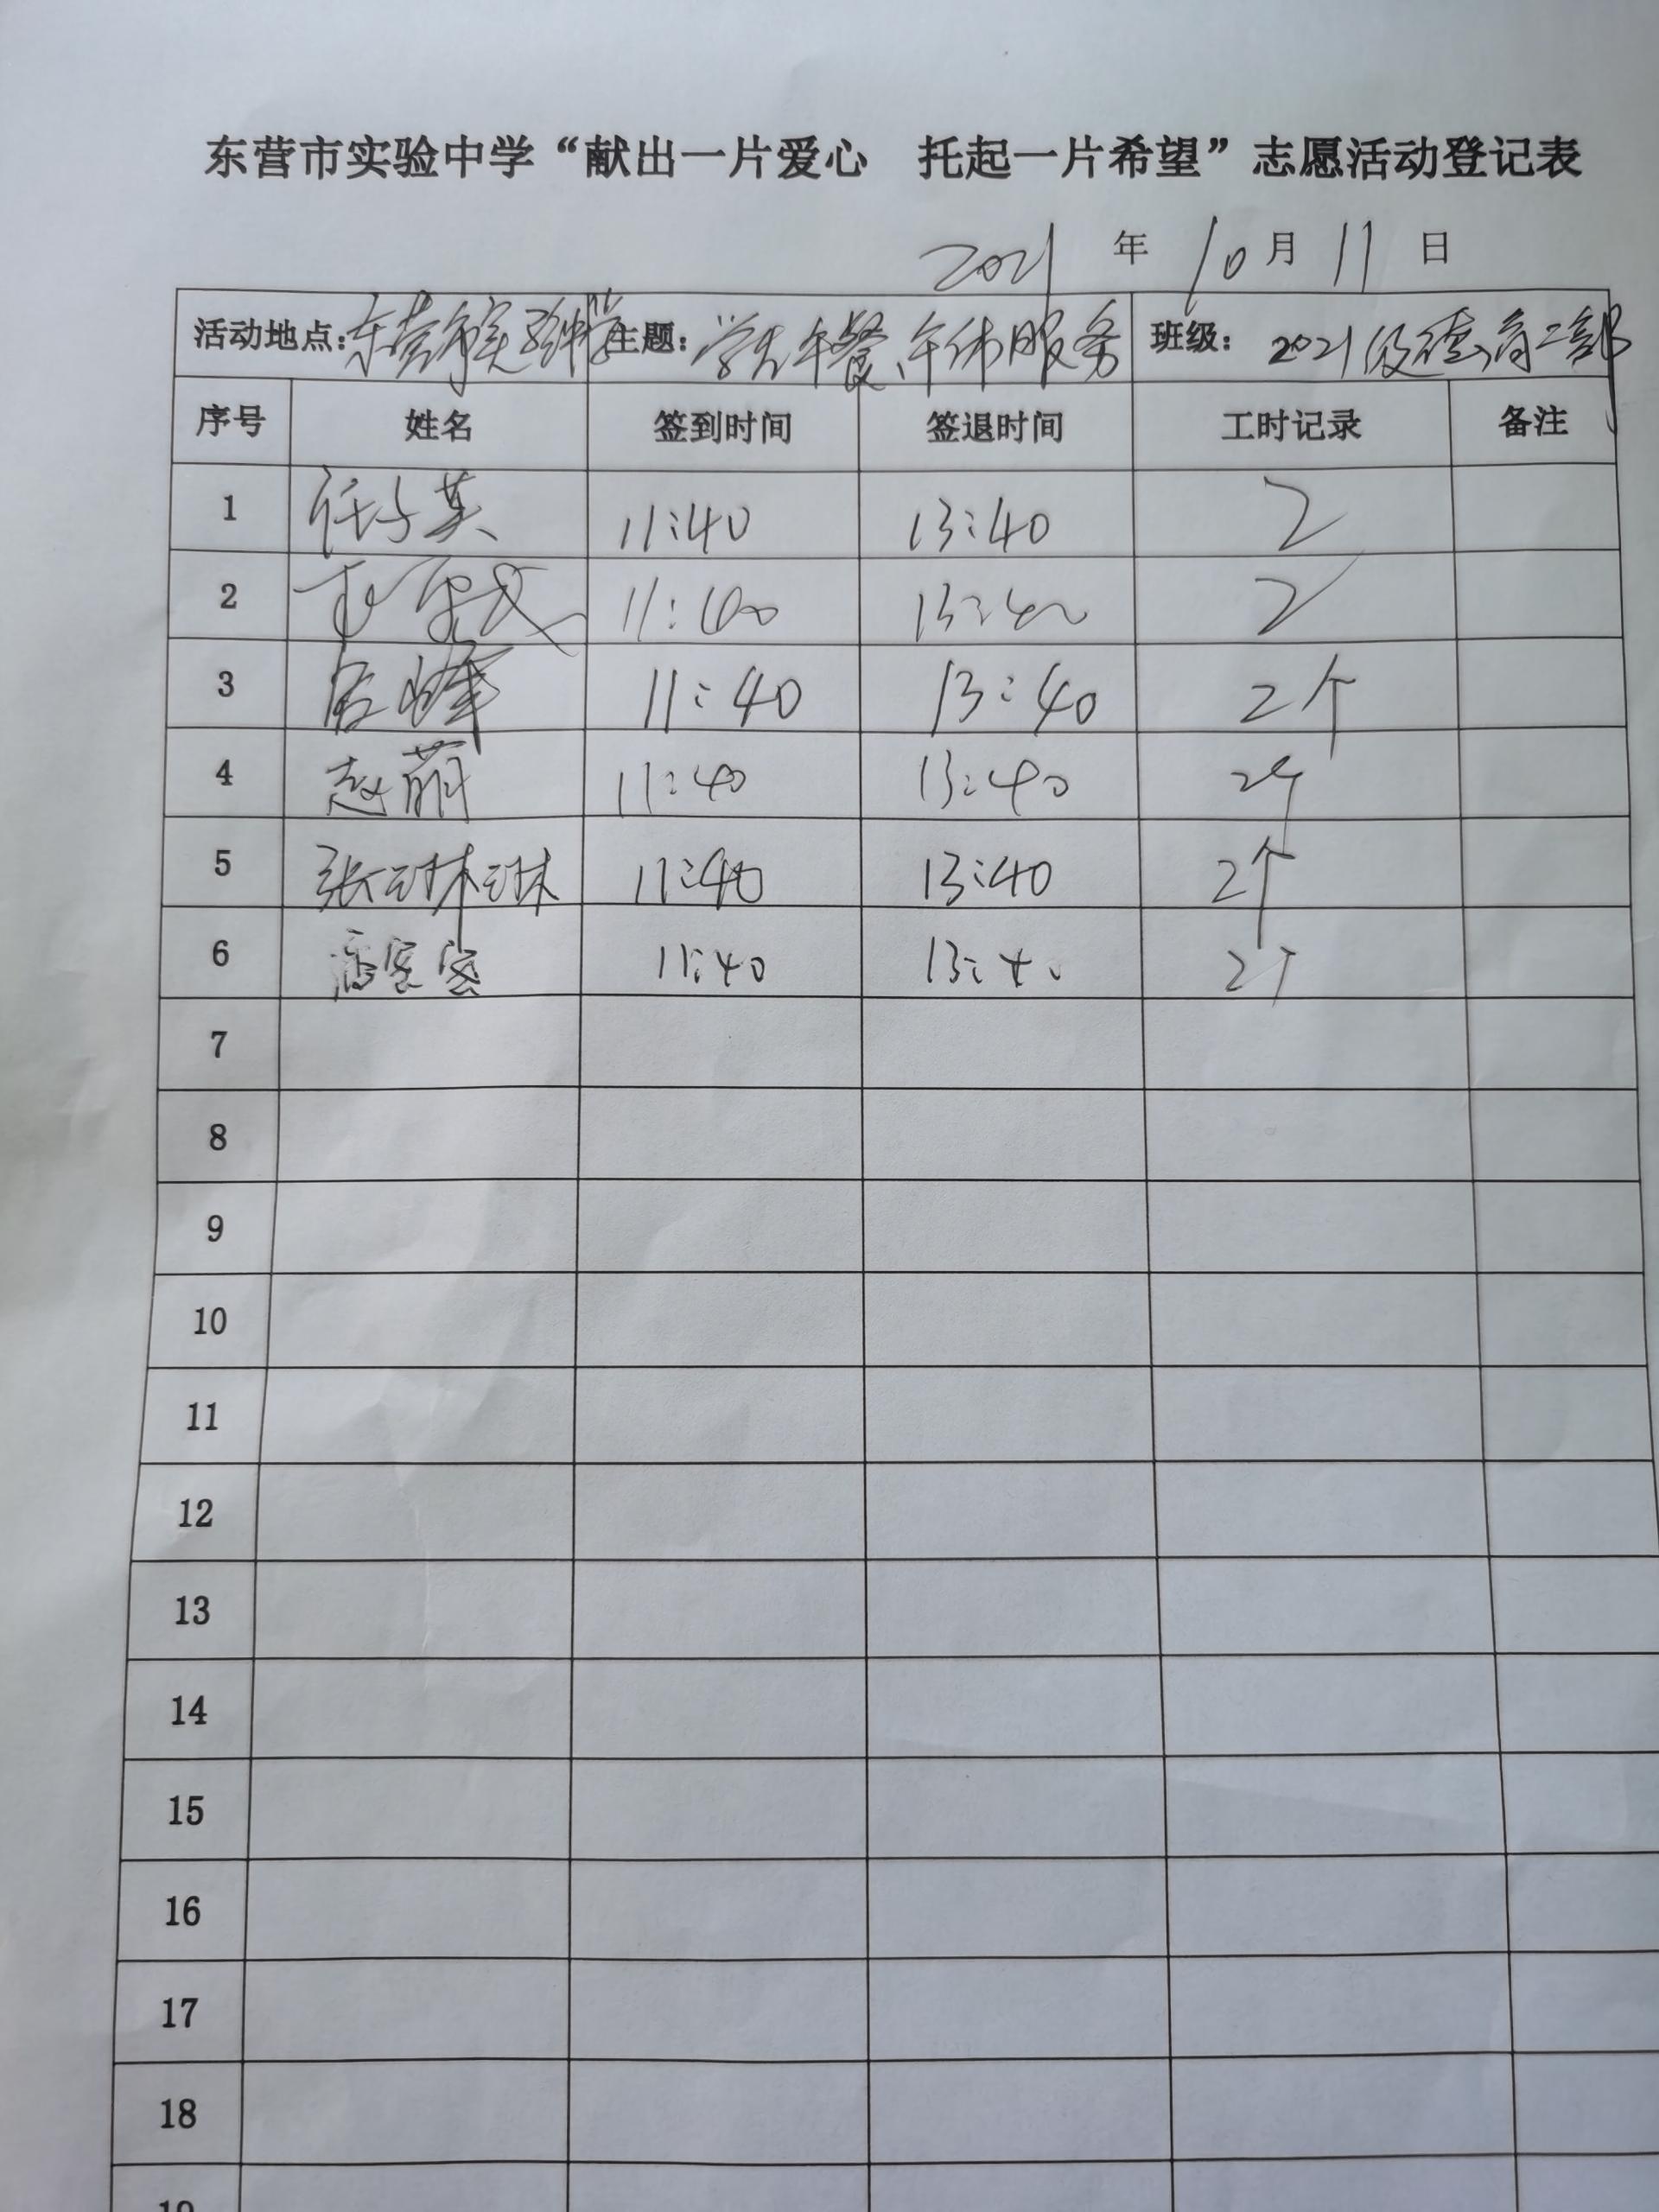 东营市实验中学“献出一片爱心 托起一片希望”志愿活动登记表
2021 年 10 月 11 日
活动地点：东营市实验中学 主题：学生午餐、午休服务 班级：2021级德育二部
序号 姓名 签到时间 签退时间 工时记录 备注
1 任子英 11:40 13:40 2
2 11:40 13:40 2
3 11:40 13:40 2个
4 赵萌 11:40 13:40 2个
5 张琳琳 11:40 13:40 2个
6 潘密密 11:40 13:40 2个
7
8
9
10
11
12
13
14
15
16
17
18
19